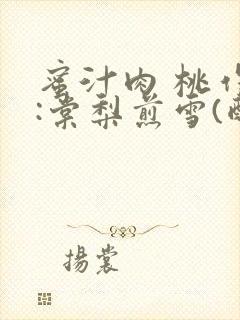 蜜汁肉桃作
:棠梨煎雪(
揚裳